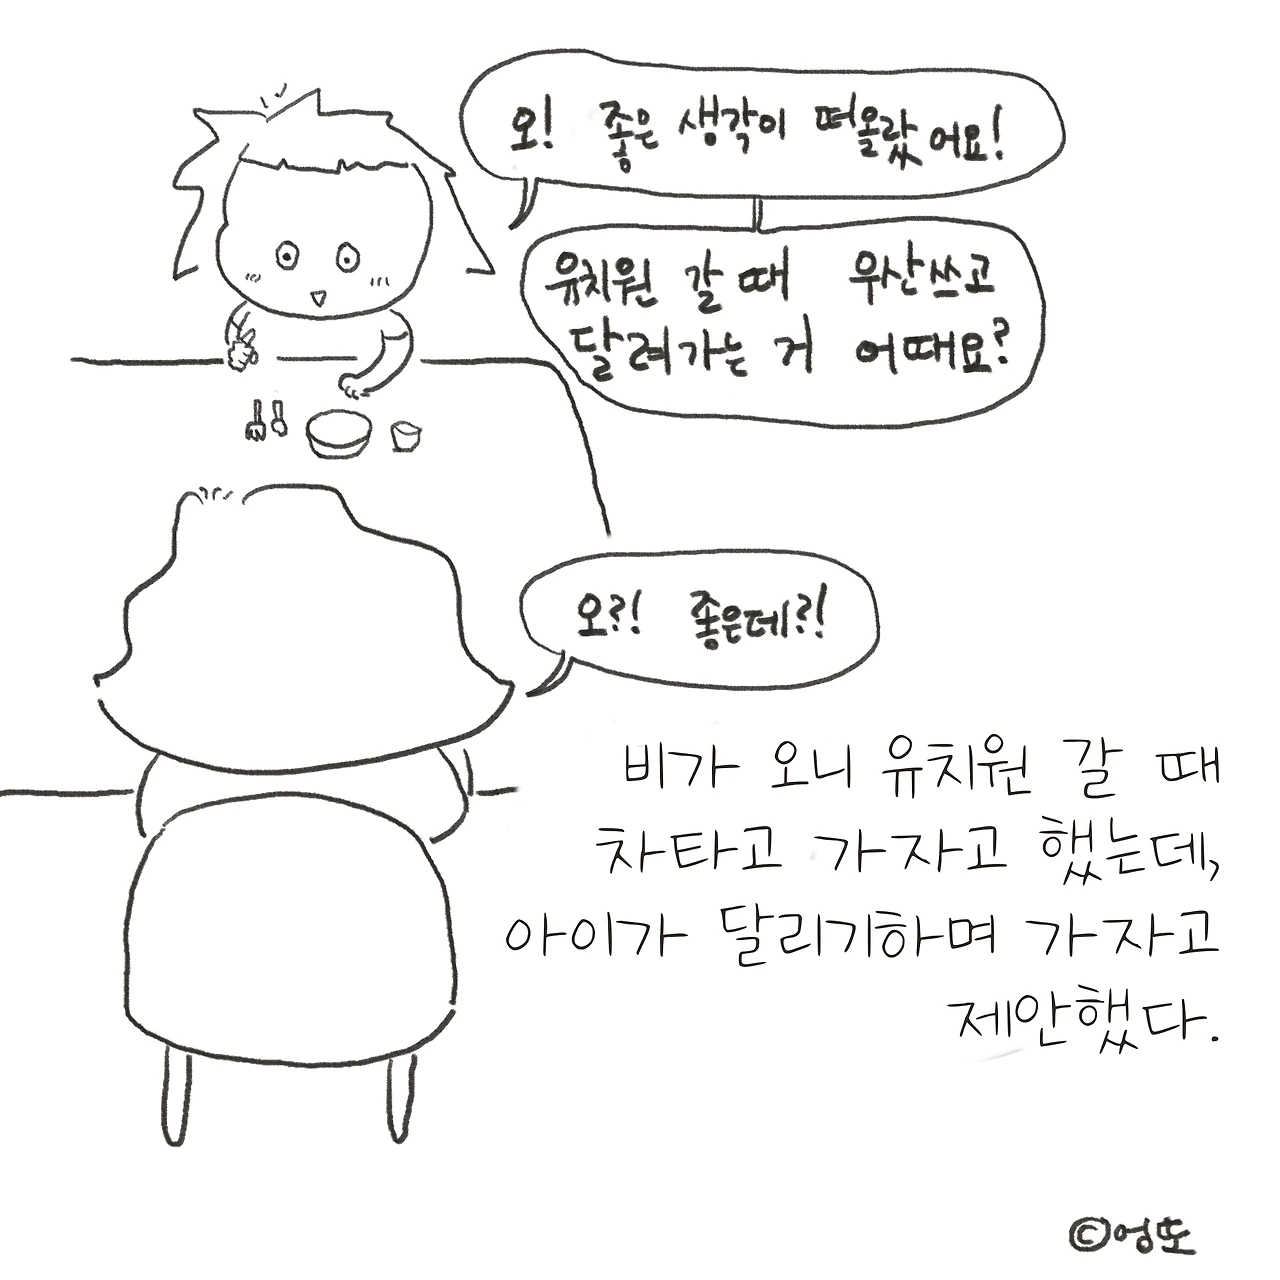 오! 좋은 생각이 떠올랐어요!
유치원 갈 때 우산쓰고
달려가는 거 어때요?
오?! 좋은데?!
비가 오니 유치원 갈 때
차타고 가자고 했는데,
아이가 달리기하며 가자고
제안했다.
©엉또